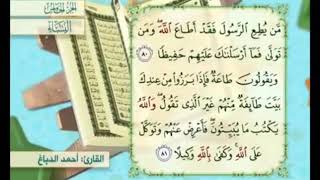 الجزء الخامس
النساء
مَّن يُطِعِ ٱلرَّسُولَ فَقَدۡ أَطَاعَ ٱللَّهَۖ وَمَن
تَوَلَّىٰ فَمَآ أَرۡسَلۡنَٰكَ عَلَيۡهِمۡ حَفِيظٗا ٨٠
وَيَقُولُونَ طَاعَةٞ فَإِذَا بَرَزُواْ مِنۡ عِندِكَ
بَيَّتَ طَآئِفَةٞ مِّنۡهُمۡ غَيۡرَ ٱلَّذِي تَقُولُۖ وَٱللَّهُ
يَكۡتُبُ مَا يُبَيِّتُونَۖ فَأَعۡرِضۡ عَنۡهُمۡ وَتَوَكَّلۡ
عَلَى ٱللَّهِۚ وَكَفَىٰ بِٱللَّهِ وَكِيلًا ٨١
القارئ: أحمد الدباغ